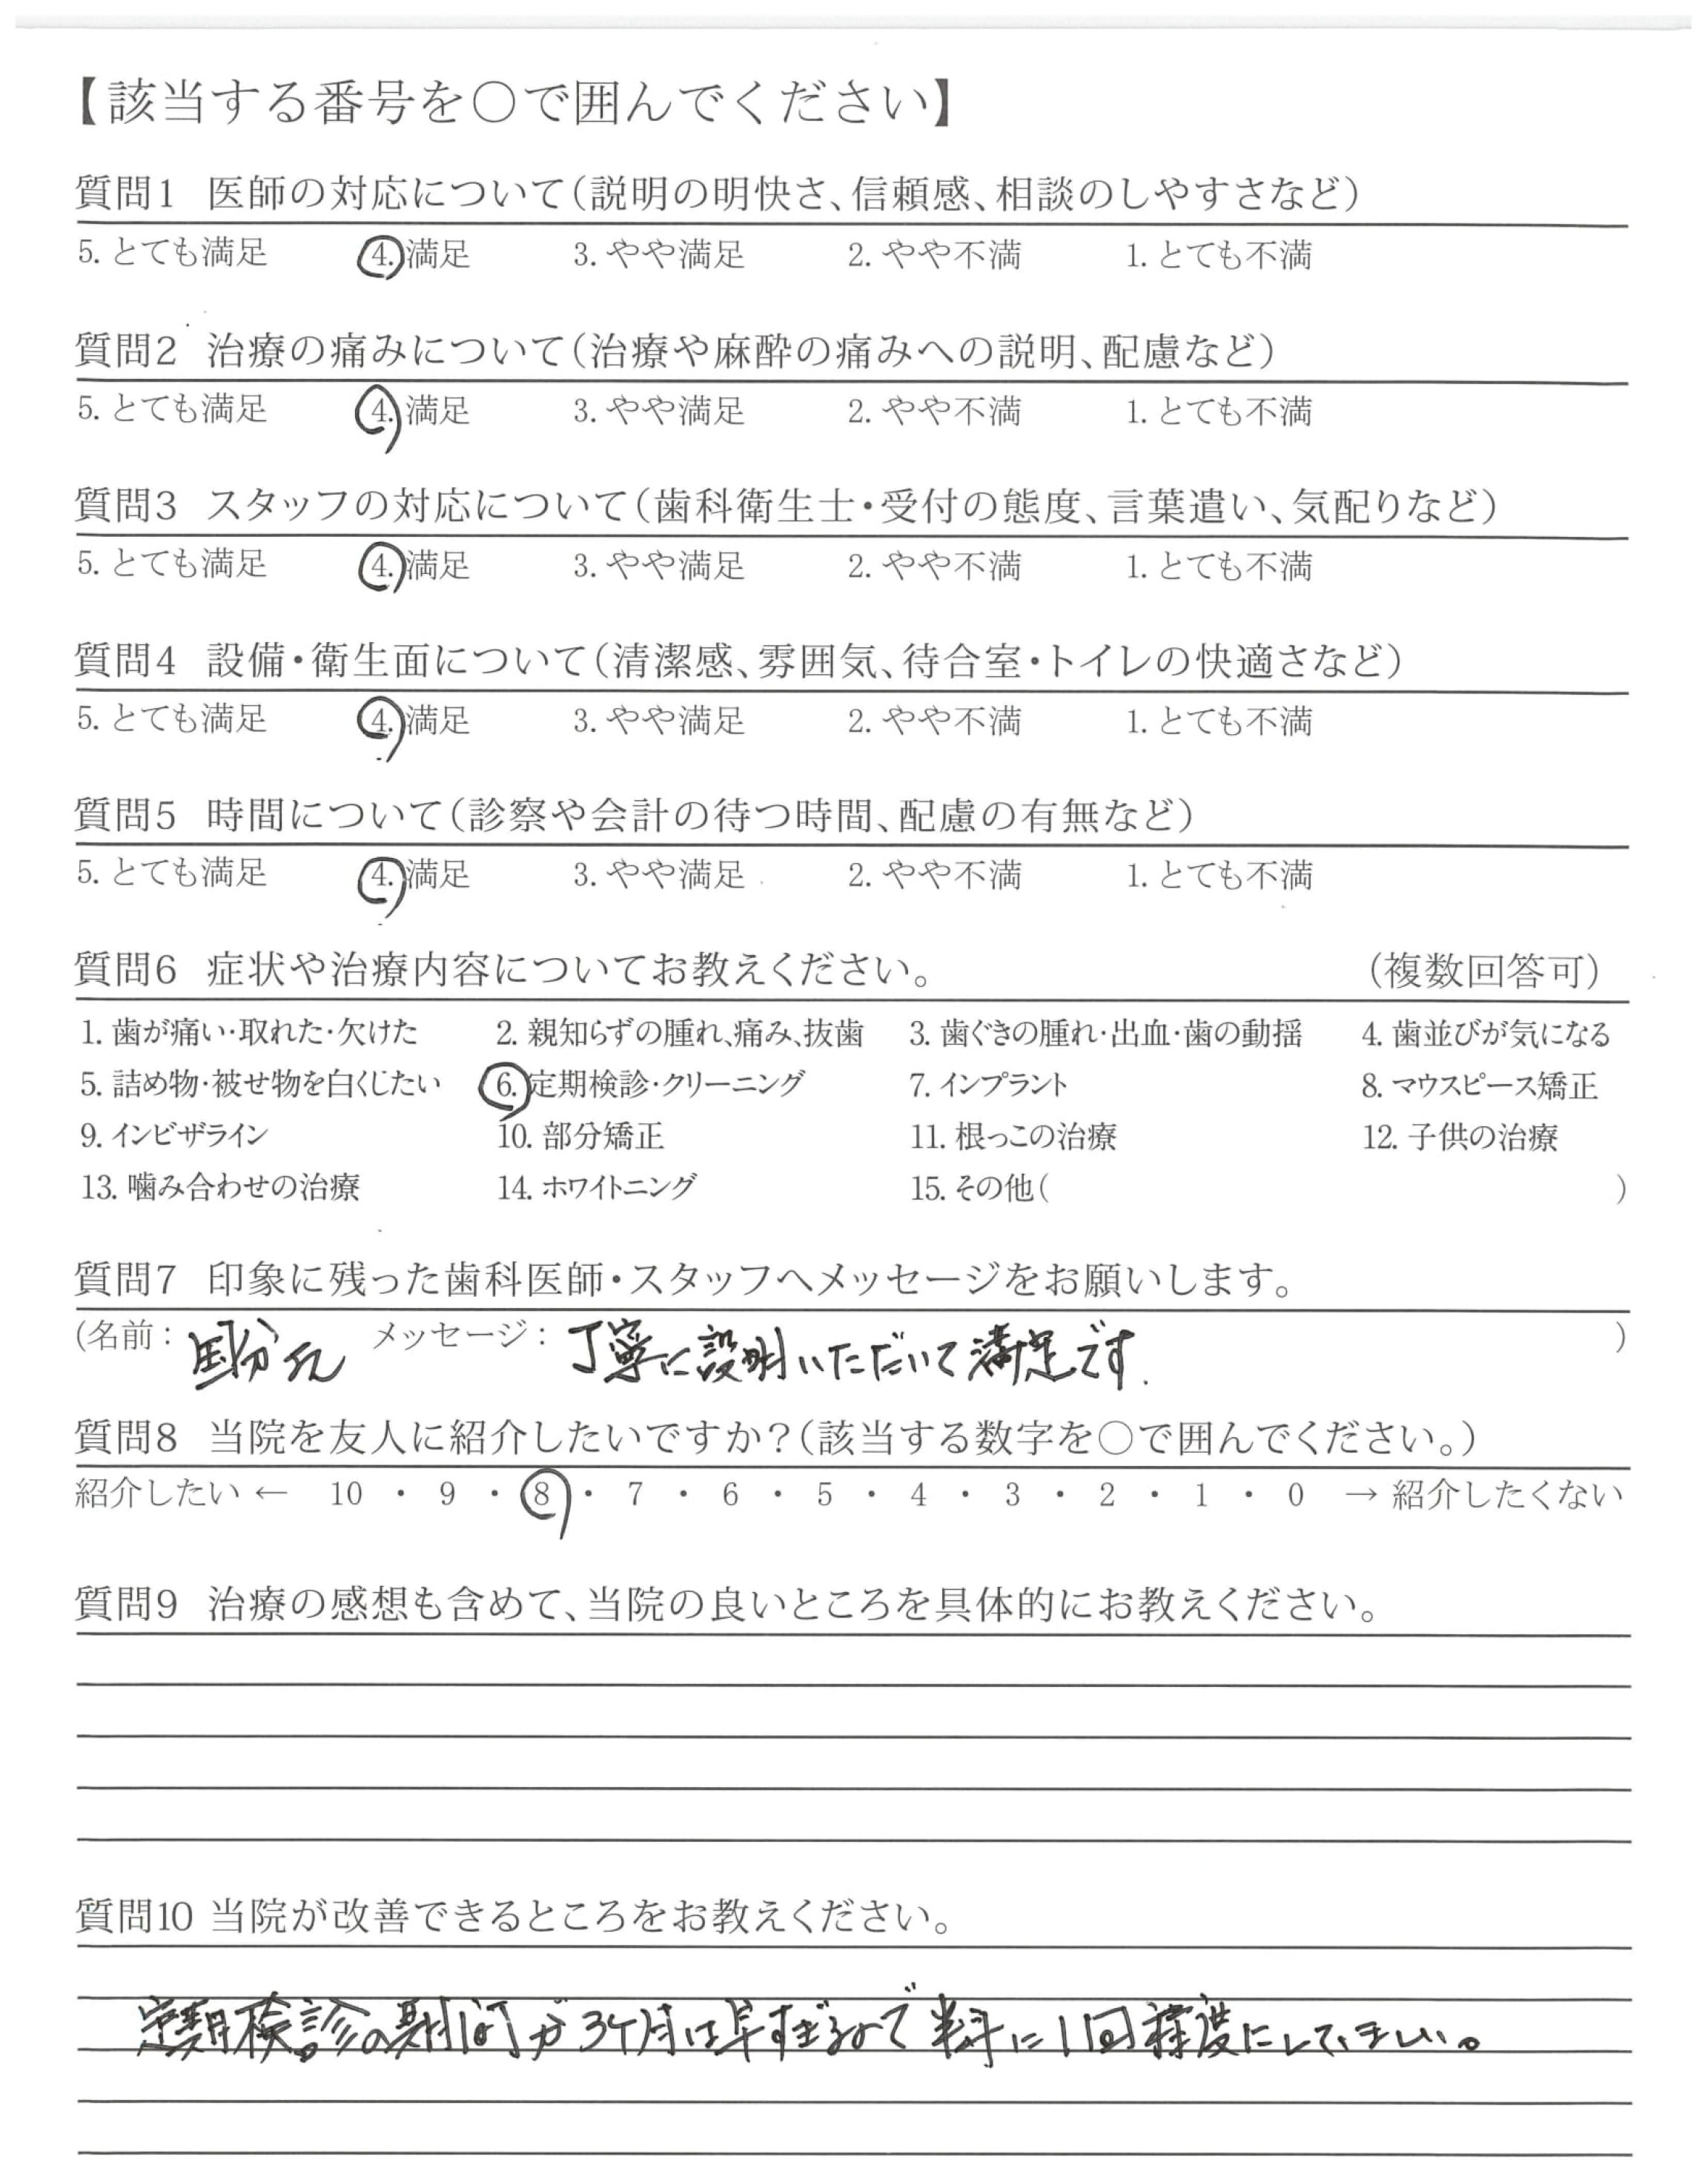 【該当する番号を○で囲んでください】
質問1 医師の対応について(説明の明快さ、信頼感、相談のしやすさなど)
5. とても満足 4. 満足 3. やや満足 2. やや不満 1. とても不満
質問2 治療の痛みについて(治療や麻酔の痛みへの説明、配慮など)
5. とても満足 4. 満足 3. やや満足 2. やや不満 1. とても不満
質問3 スタッフの対応について(歯科衛生士・受付の態度、言葉遣い、気配りなど)
5. とても満足 4. 満足 3. やや満足 2. やや不満 1. とても不満
質問4 設備・衛生面について(清潔感、雰囲気、待合室・トイレの快適さなど)
5. とても満足 4. 満足 3. やや満足 2. やや不満 1. とても不満
質問5 時間について(診察や会計の待つ時間、配慮の有無など)
5. とても満足 4. 満足 3. やや満足 2. やや不満 1. とても不満
質問6 症状や治療内容についてお教えください。 (複数回答可)
1. 歯が痛い・取れた・欠けた 2. 親知らずの腫れ、痛み、抜歯 3. 歯ぐきの腫れ・出血・歯の動揺 4. 歯並びが気になる
5. 詰め物・被せ物を白くしたい 6. 定期検診・クリーニング 7. インプラント 8. マウスピース矯正
9. インビザライン 10. 部分矯正 11. 根っこの治療 12. 子供の治療
13. 噛み合わせの治療 14. ホワイトニング 15. その他( )
質問7 印象に残った歯科医師・スタッフへメッセージをお願いします。
(名前: 国分さん メッセージ: 丁寧に説明いただいて満足です. )
質問8 当院を友人に紹介したいですか?(該当する数字を○で囲んでください。)
紹介したい ← 10 ・ 9 ・ 8 ・ 7 ・ 6 ・ 5 ・ 4 ・ 3 ・ 2 ・ 1 ・ 0 → 紹介したくない
質問9 治療の感想も含めて、当院の良いところを具体的にお教えください。
質問10 当院が改善できるところをお教えください。
定期検診の期間が3ヶ月は早すぎるので半年に1回程度にしてほしい。